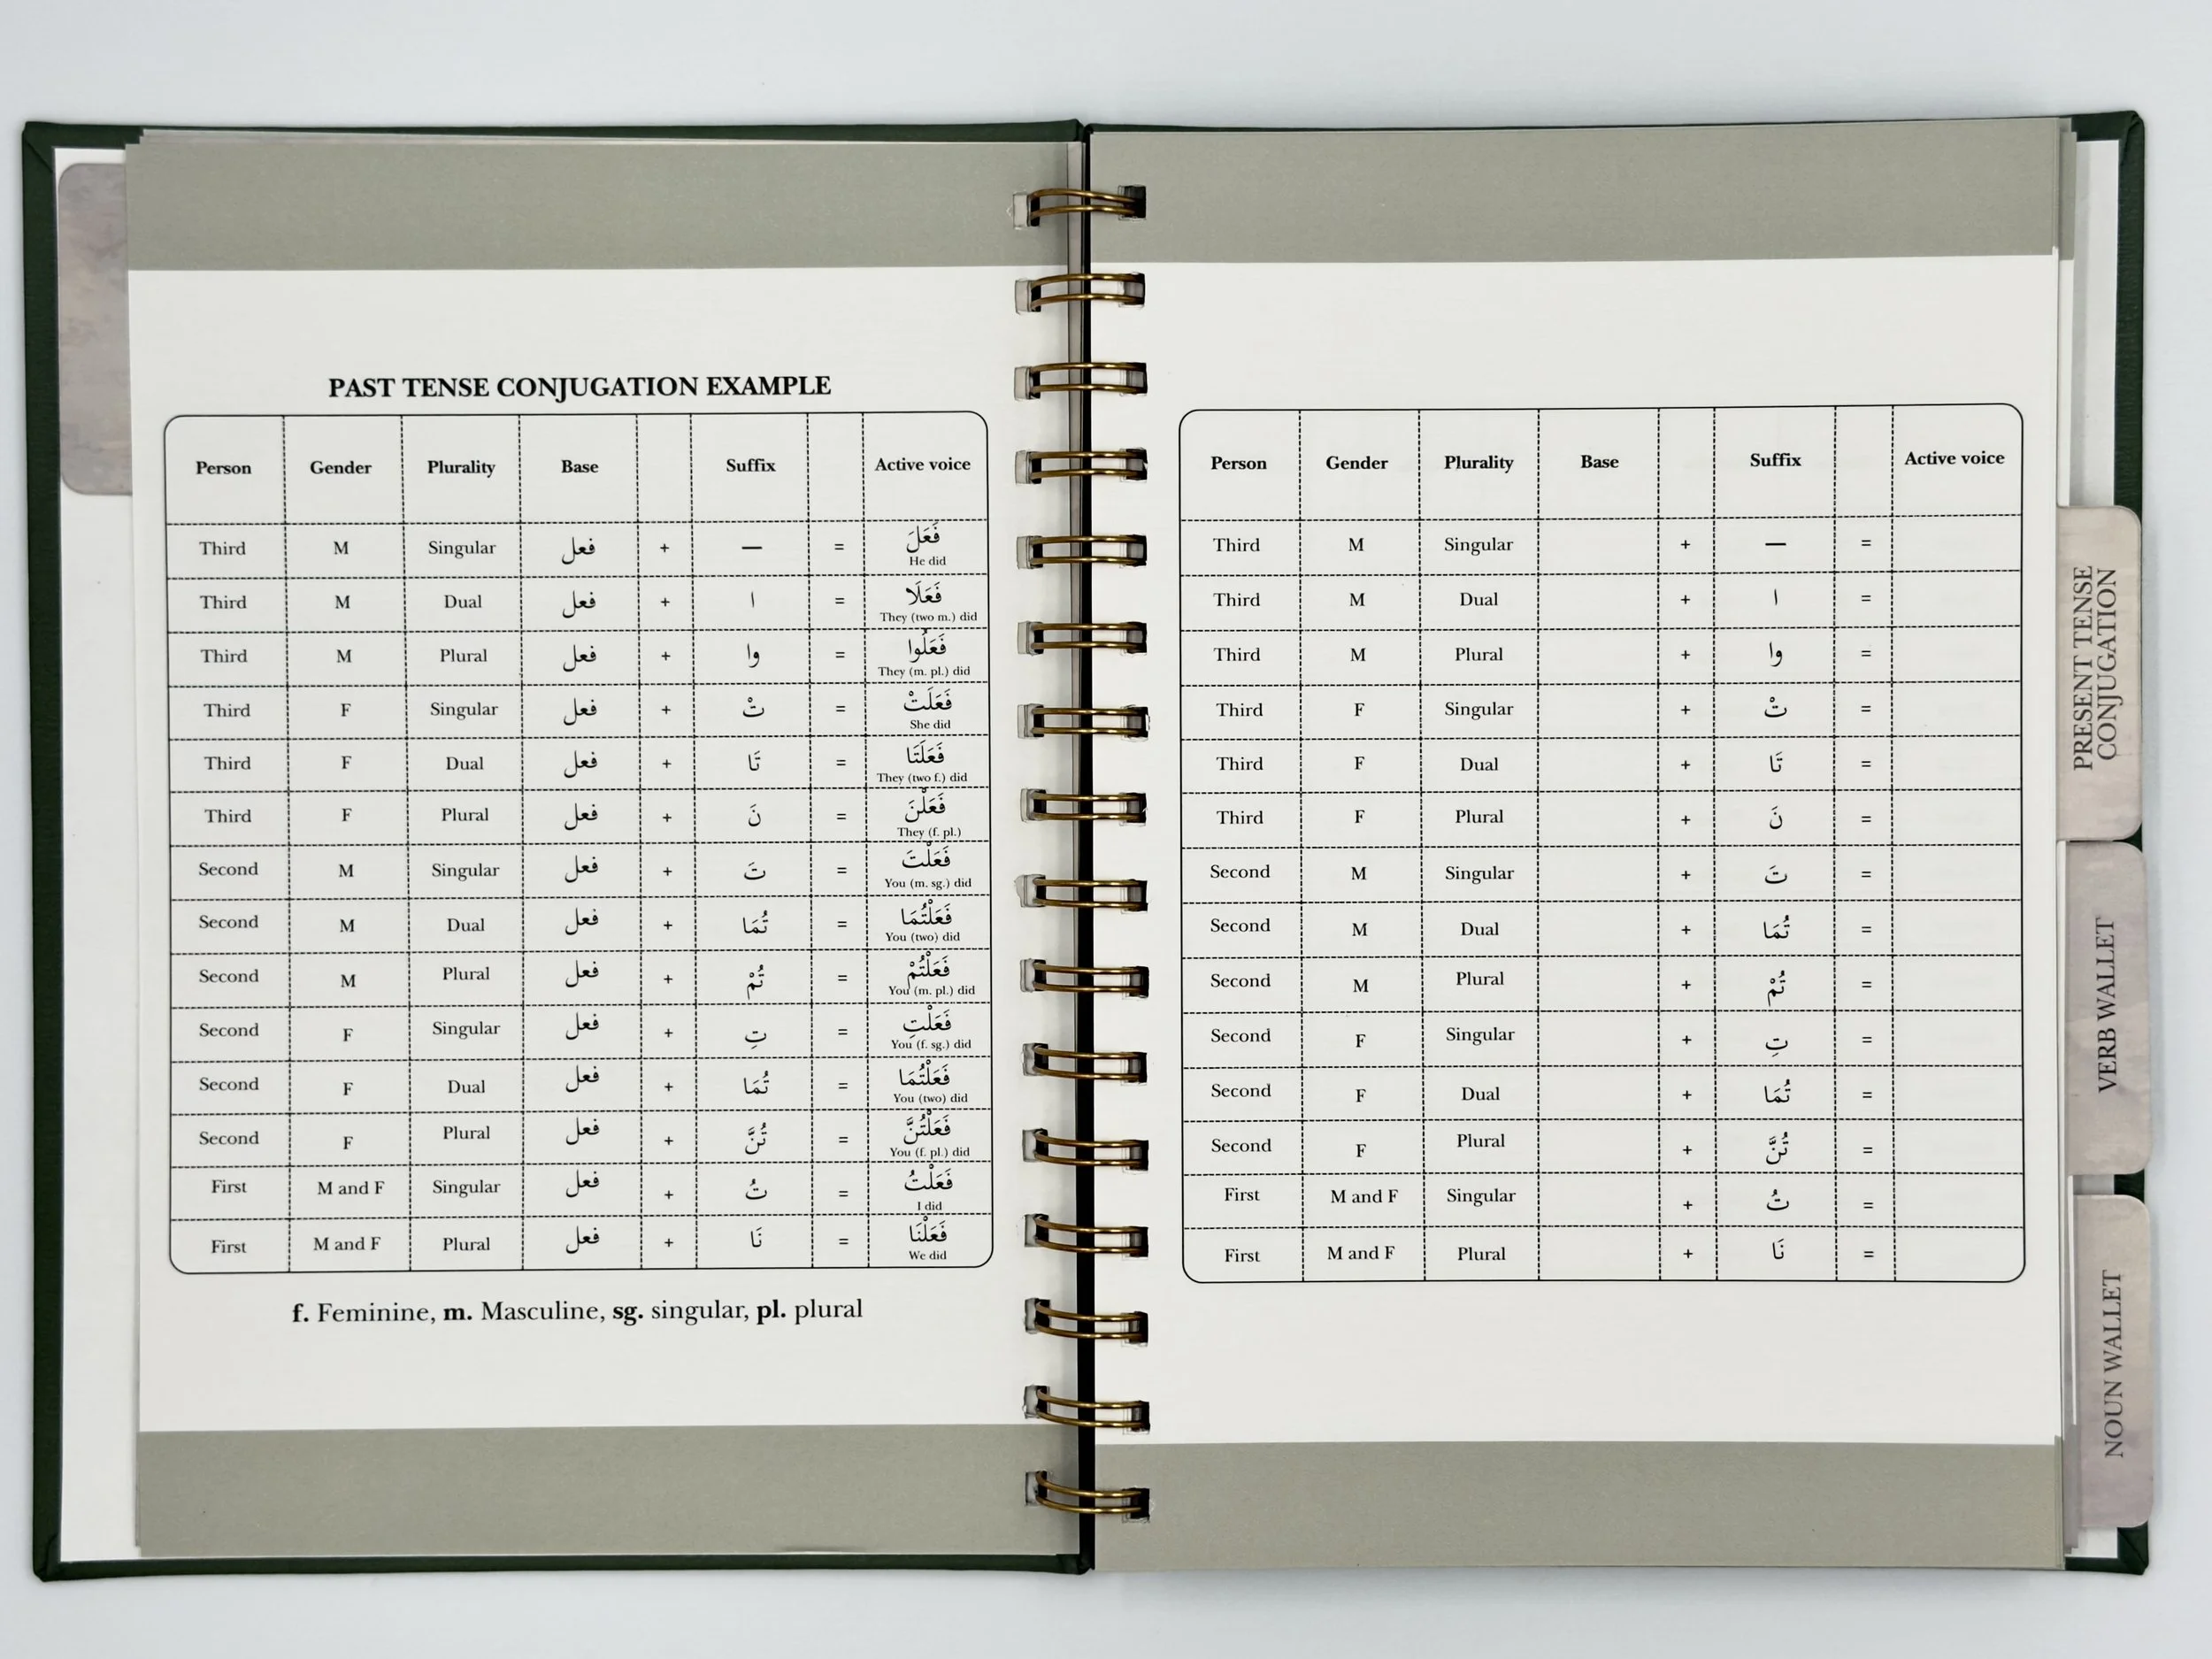 PAST TENSE CONJUGATION EXAMPLE
Person Gender Plurality Base Suffix Active voice
Third M Singular فعل + — = فَعَلَ
He did
Third M Dual فعل + ا = فَعَلَا
They (two m.) did
Third M Plural فعل + وا = فَعَلُوا
They (m. pl.) did
Third F Singular فعل + تْ = فَعَلَتْ
She did
Third F Dual فعل + تَا = فَعَلَتَا
They (two f.) did
Third F Plural فعل + نَ = فَعَلْنَ
They (f. pl.)
Second M Singular فعل + تَ = فَعَلْتَ
You (m. sg.) did
Second M Dual فعل + تُمَا = فَعَلْتُمَا
You (two) did
Second M Plural فعل + تُمْ = فَعَلْتُمْ
You (m. pl.) did
Second F Singular فعل + تِ = فَعَلْتِ
You (f. sg.) did
Second F Dual فعل + تُمَا = فَعَلْتُمَا
You (two) did
Second F Plural فعل + تُنَّ = فَعَلْتُنَّ
You (f. pl.) did
First M and F Singular فعل + تُ = فَعَلْتُ
I did
First M and F Plural فعل + نَا = فَعَلْنَا
We did
f. Feminine, m. Masculine, sg. singular, pl. plural
Person Gender Plurality Base Suffix Active voice
Third M Singular + — =
Third M Dual + ا =
Third M Plural + وا =
Third F Singular + تْ =
Third F Dual + تَا =
Third F Plural + نَ =
Second M Singular + تَ =
Second M Dual + تُمَا =
Second M Plural + تُمْ =
Second F Singular + تِ =
Second F Dual + تُمَا =
Second F Plural + تُنَّ =
First M and F Singular + تُ =
First M and F Plural + نَا =
PRESENT TENSE
CONJUGATION
VERB WALLET
NOUN WALLET